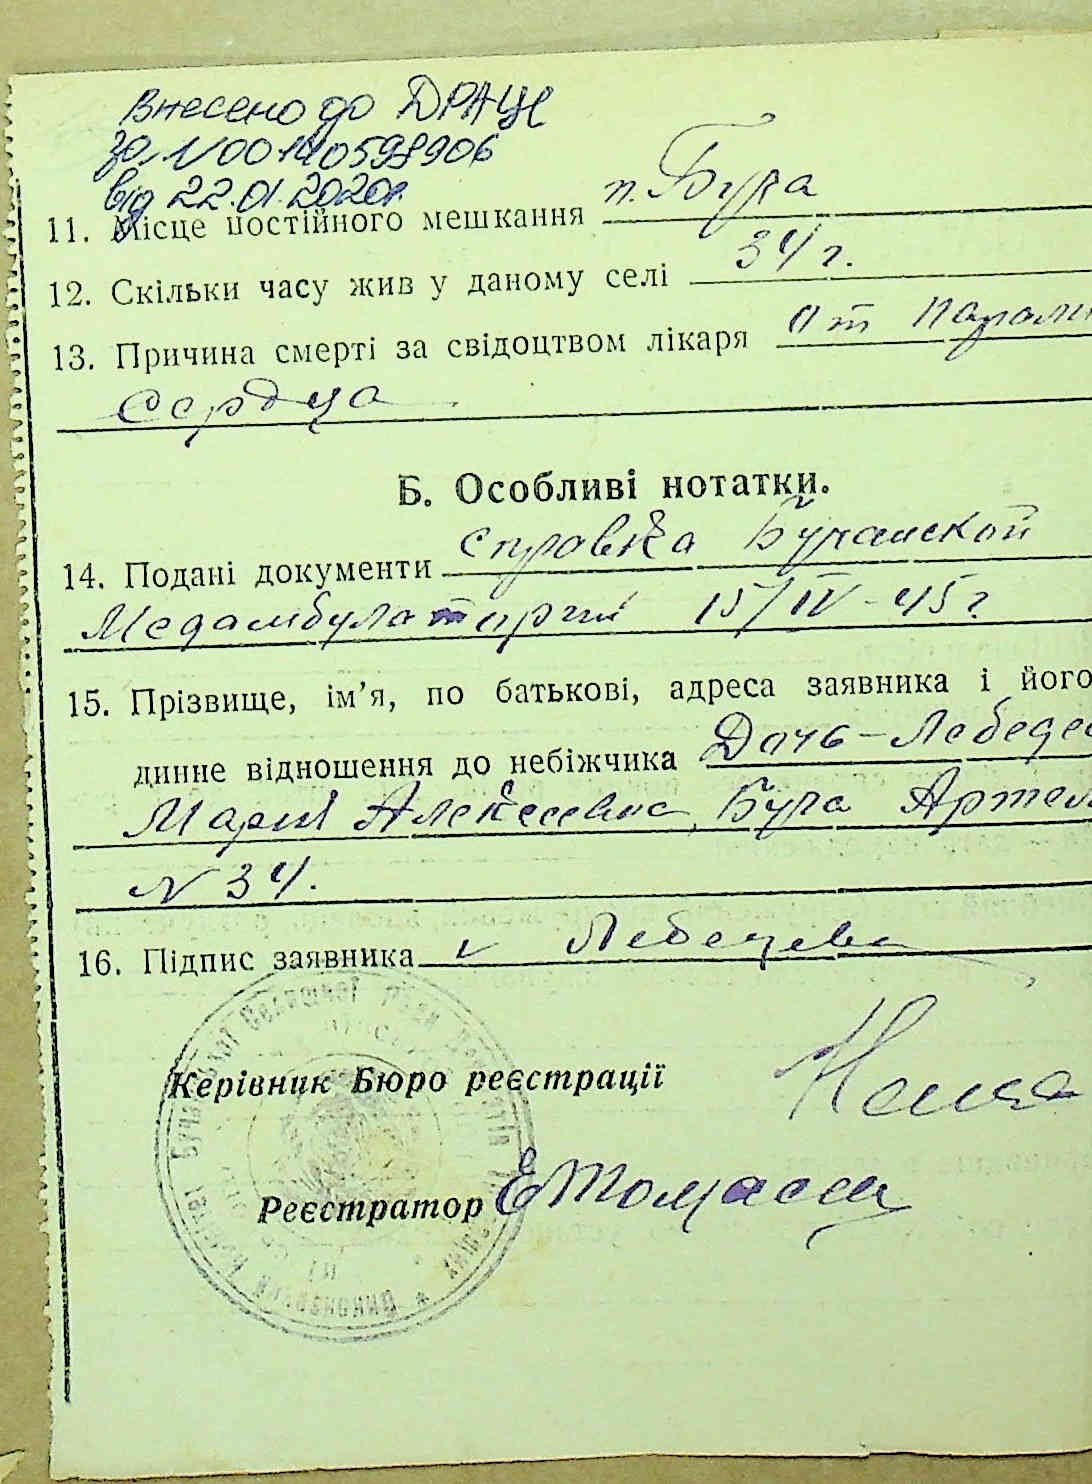 Внесено до ДРАЦС
за N 00140598906
від 22.01.2020р.
11. Місце постійного мешкання п. Буча
12. Скільки часу жив у даному селі 34 г.
13. Причина смерті за свідоцтвом лікаря От парали
сердца
Б. Особливі нотатки.
14. Подані документи Справка Бучанской
Медамбулатории 15/IV-45 г
15. Прізвище, ім’я, по батькові, адреса заявника і його
динне відношення до небіжчика Дочь - Лебедев
Мария Алексеевна, Буча Артем
N 34.
16. Підпис заявника Лебедева
Керівник Бюро реєстрації
Реєстратор